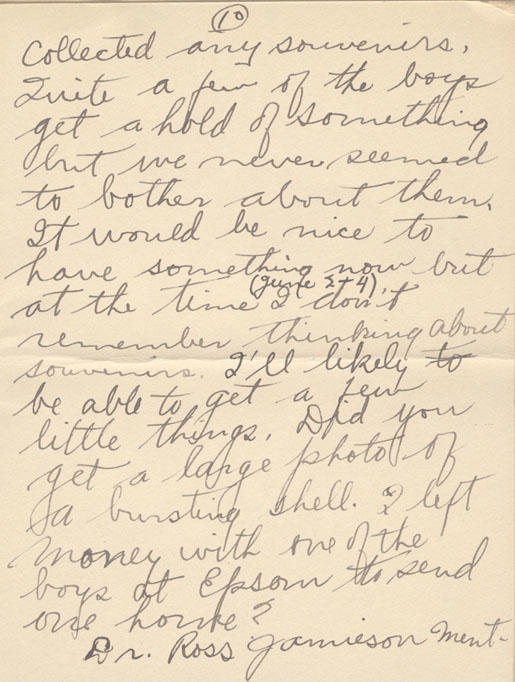 10
collected any souvenirs.
Quite a few of the boys
get a hold of something
but we never seemed
to bother about them.
It would be nice to
have something now but
at the time (June 2+4), I don't
remember thinking about
souvenirs. I'll likely to
be able to get a few
little things. Did you
get a large photo of
a bursting shell. I left
money with one of the
boys at Epsom to send
one home?
Dr. Ross Jamieson ment-